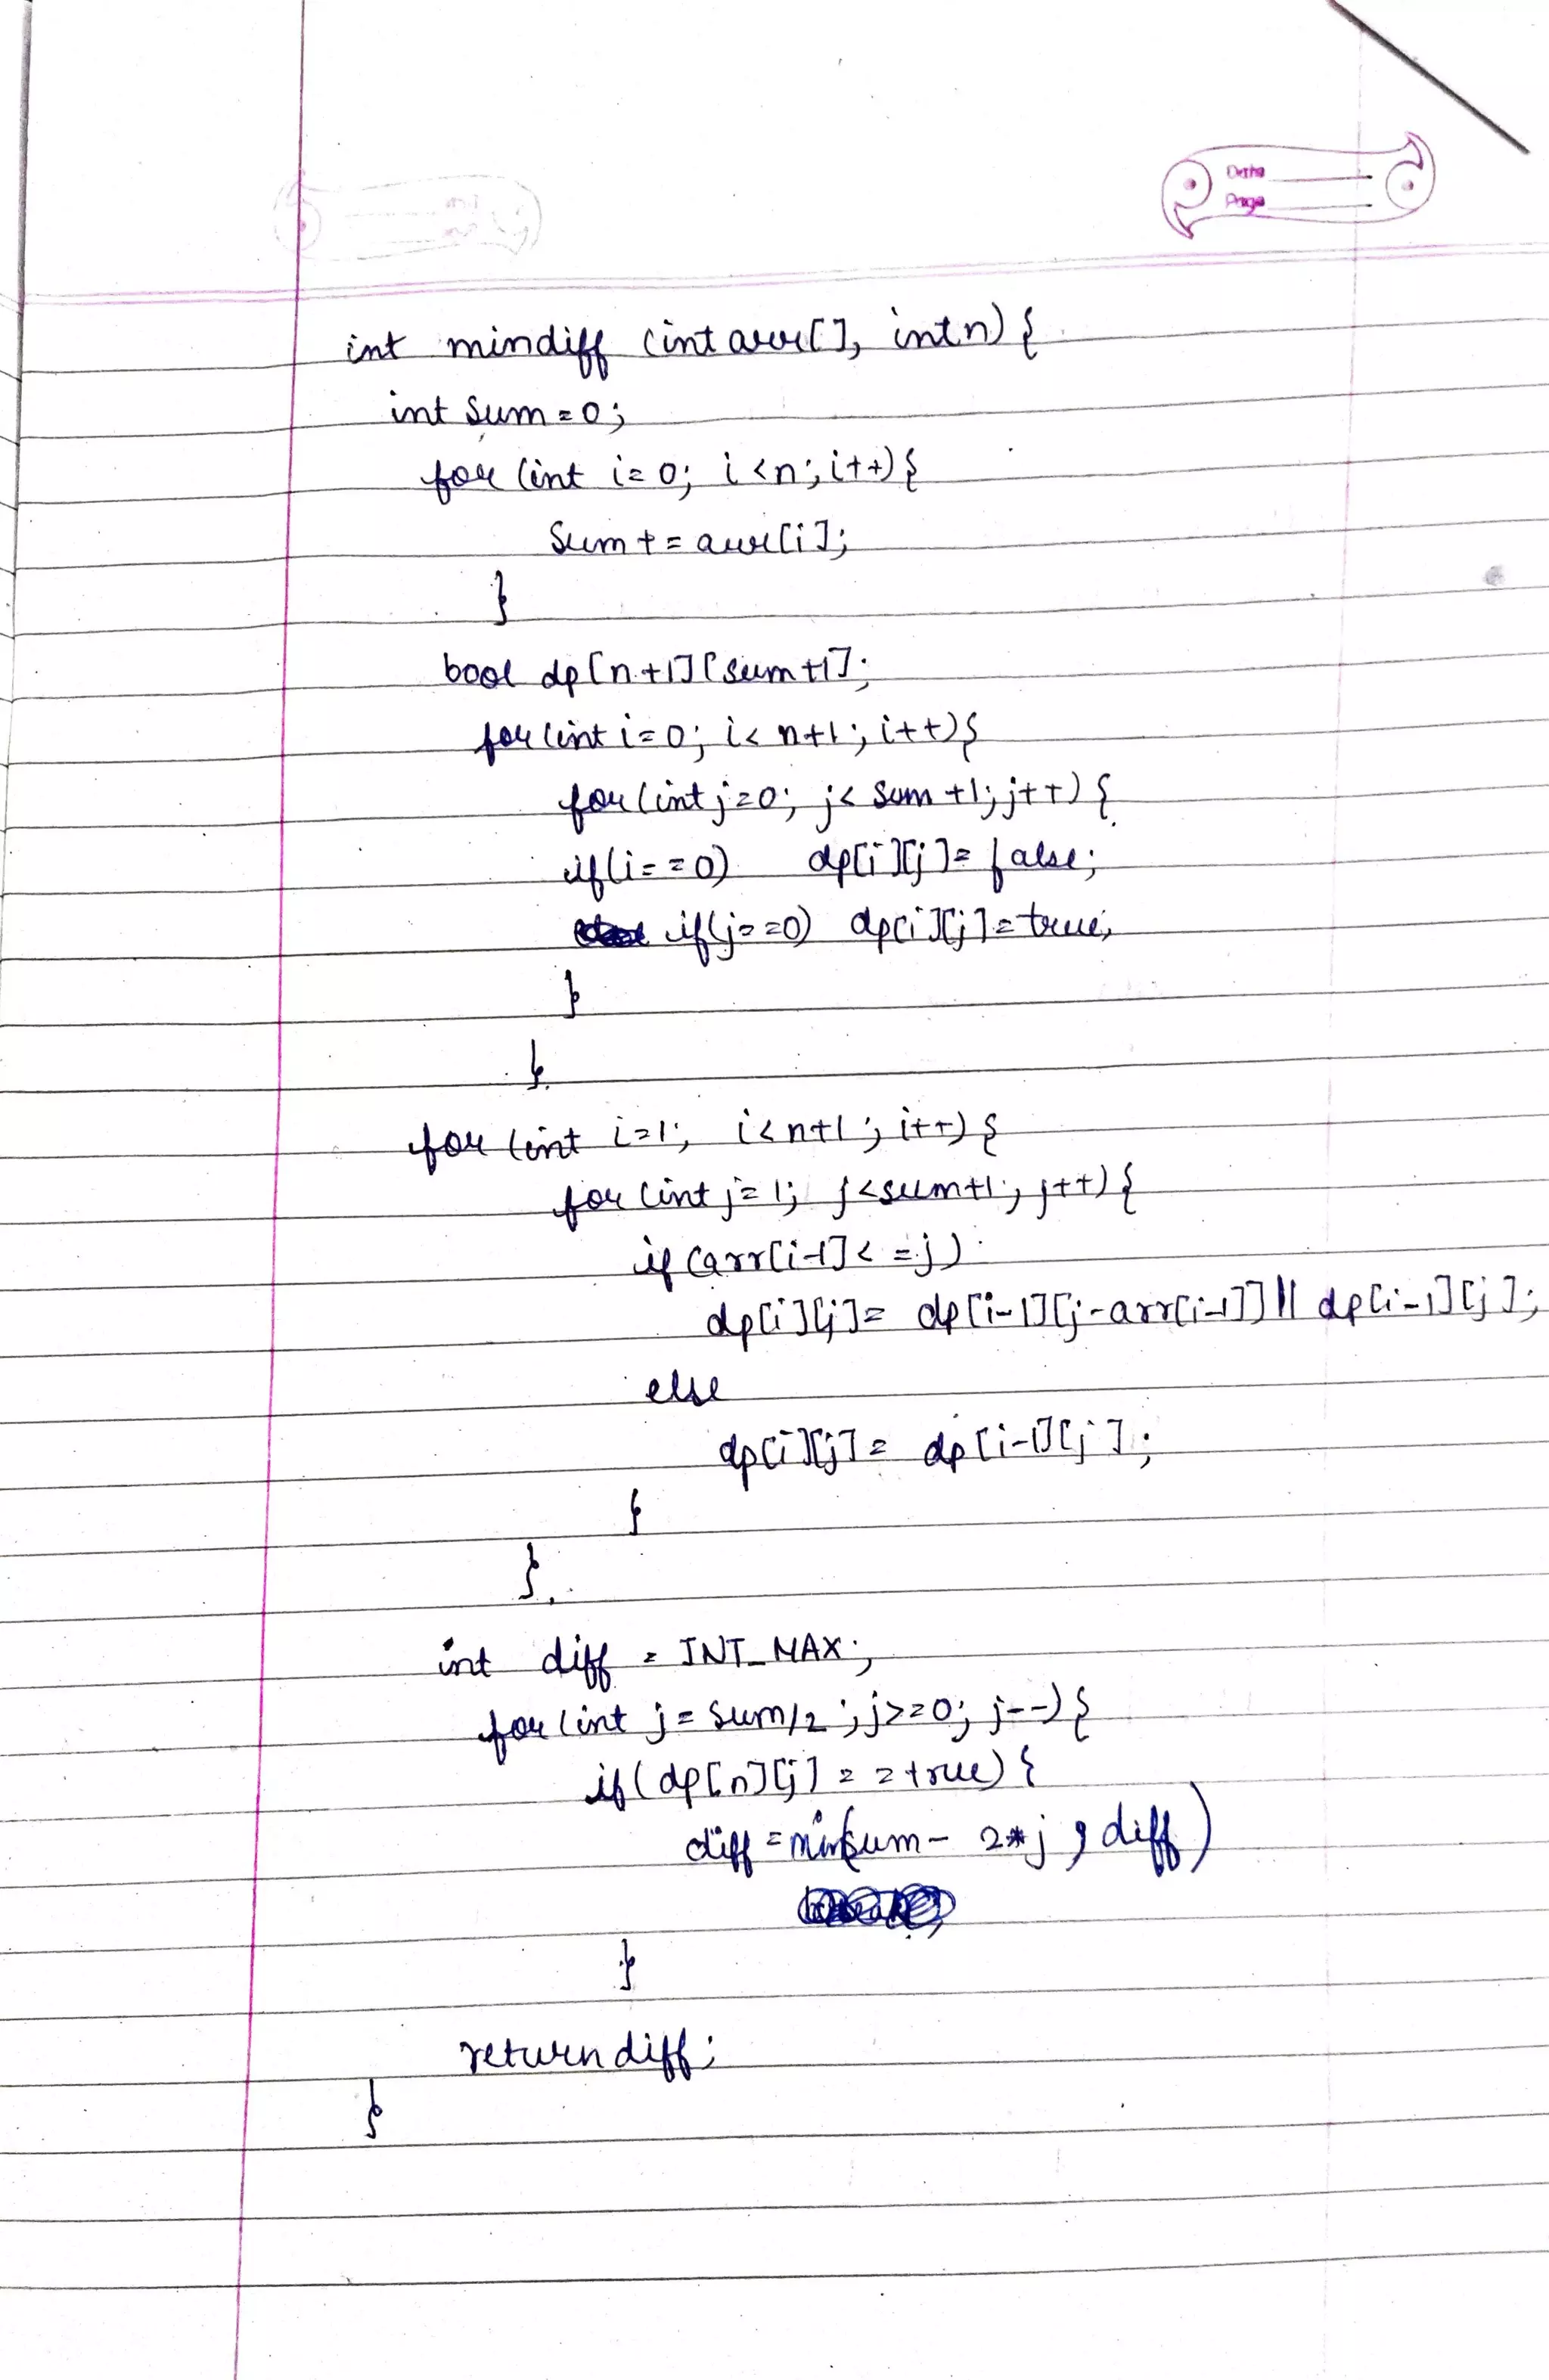 Date
Page
int mindiff (int arr[], int n) {
int sum = 0;
for (int i = 0; i < n; i++) {
Sum += arr[i];
}
bool dp[n+1][sum+1];
for (int i = 0; i < n+1; i++) {
for (int j = 0; j < sum+1; j++) {
if (i == 0) dp[i][j] = false;
if (j == 0) dp[i][j] = true;
}
}
for (int i = 1; i < n+1; i++) {
for (int j = 1; j < sum+1; j++) {
if (arr[i-1] <= j)
dp[i][j] = dp[i-1][j-arr[i-1]] || dp[i-1][j];
else
dp[i][j] = dp[i-1][j];
}
}
int diff = INT_MAX;
for (int j = sum/2; j >= 0; j--) {
if (dp[n][j] == true) {
diff = min(sum - 2*j, diff)
}
return diff;
}